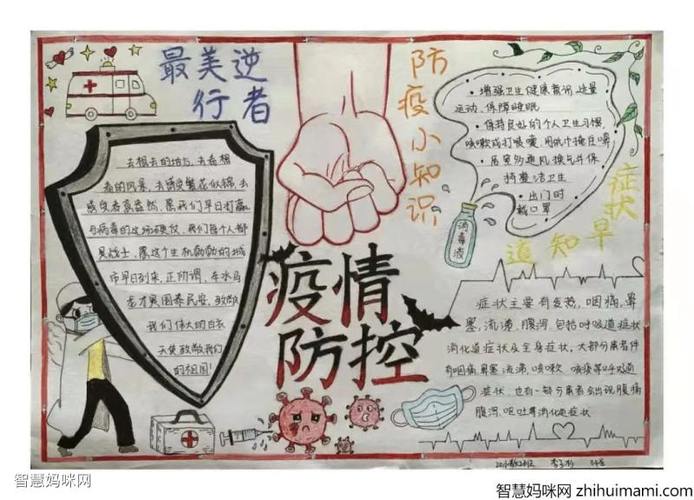 最美逆
行者
去想去的地方,去看想
看的风景,去感受繁花似锦,去
感受春意盎然,愿我们早日打赢
与病毒的这场硬仗,我们每个人都
是战士,愿这个生机勃勃的城
市早日到来,正阳调,车水马
龙才衷国泰民安,致敬
我们伟大的白衣
天使致敬我们
的祖国!
防疫小知识
•增强卫生健康常识,适量
运动、保障睡眠
•保持良好的个人卫生习惯,
咳嗽或打喷嚏,用纸巾掩口鼻
•居室多通风换气并保
持整洁卫生
•出门时
戴口罩
消毒液
症状
早知道
疫情
防控
症状主要有发热,咽痛,鼻
塞,流涕,腹泻,包括呼吸道症状
消化道症状及全身症状,大部分患者伴
有咽痛鼻塞流涕,咳嗽、咳痰等呼吸道
症状,也有一部分患者会出现腹痛
腹泻、呕吐等消化道症状
智慧妈咪网
智慧妈咪网 zhihuimami.com